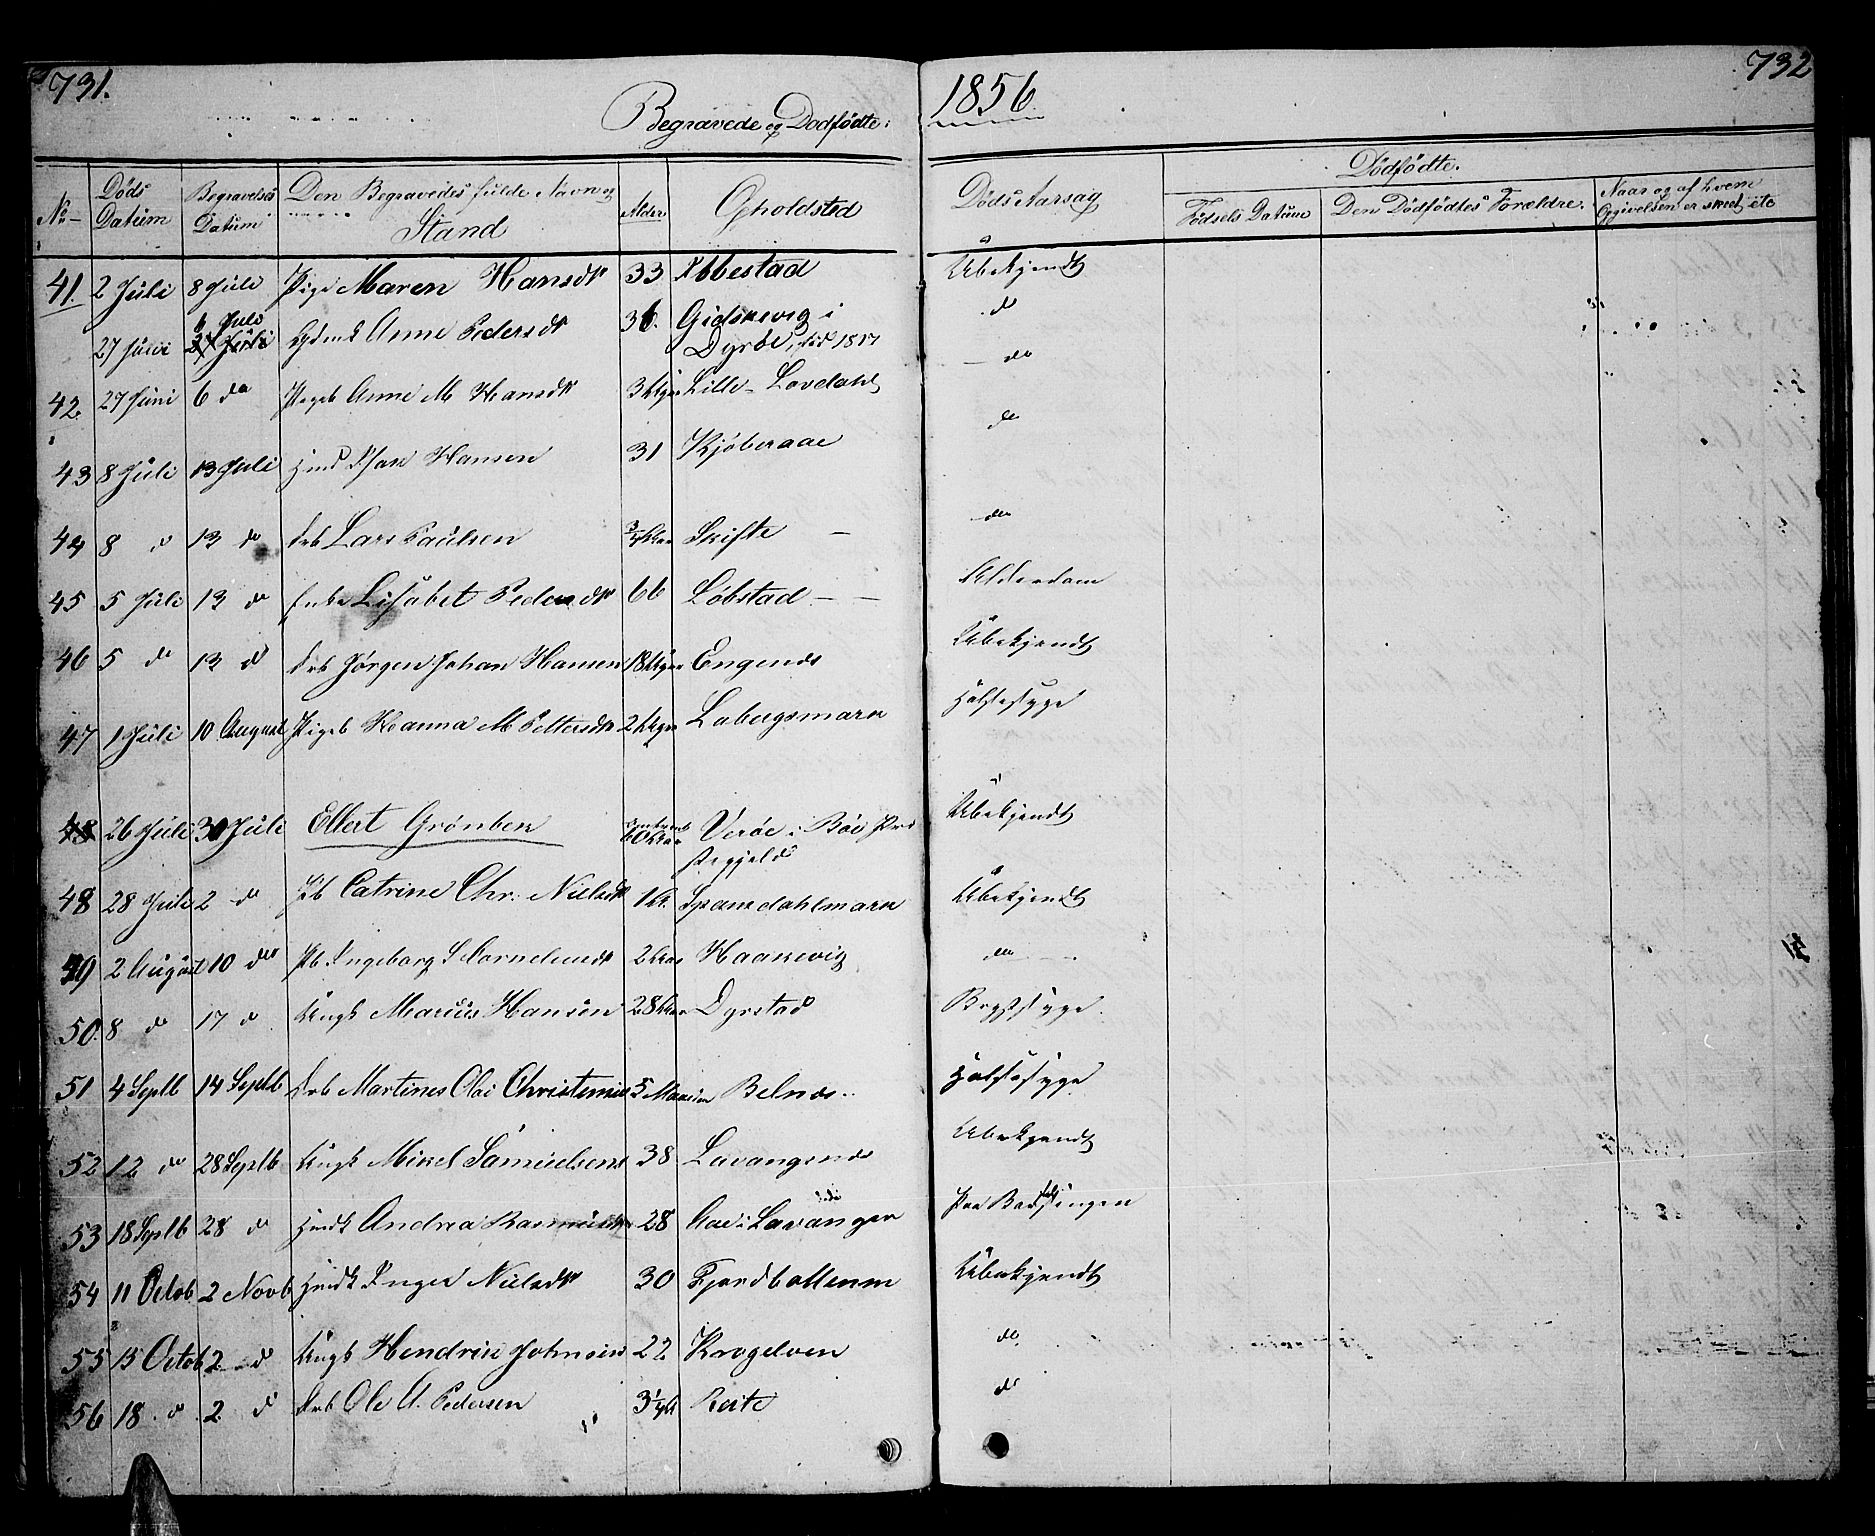 731.
Begravede og Dødfødte:
1856.
732
No
Døds Datum
Begravelses Datum
Den Begravedes fulde Navn og Stand
Alder
Opholdsted
Døds Aarsag
Dødfødte.
Fødsels Datum
Den Dødfødtes Forældre.
Naar og af hvem Opgivelsen er skeet etc
41. 2 Juli 8 Juli Pige Maren Hansdtr 33 Ibbestad Ubekjendt
27 Juni 6 Juli Anne Pedersdtr 36. Gidskevig i do
Dyrøe, fød 1817
42. 27 Juni 6 do Pigeb Anne M Hansdtr Lille-Lovedahl do
43 8 Juli 13 Juli Hansen 31 Kjøberaae do
44 8 d 13 do Drb Lars Paulsen Skifte — do
45 5 Juli 13 do Enke Lisabet Pedersdtr 66 Løbstad — — Alderdom
46 5 do 13 d Drb Jørgen Johan Hansen Engenæs Ubekjendt
47 1 Juli 10 August Pigeb Hanna M Pettersdtr Labergsmark Halssyge
48 26 Juli 30 Juli Ellert Grønbek Værøe i Ubekjendt
48 28 Juli 2 do Pb Catrine Chr. Nielsdtr Spansdahlmark Ubekjendt
49 2 August 10 do Pb Ingeborg S Cornelius dtr Haakevig do
50. 8 do 17 d Ungk Marius Hansen 28 Dyrstad Brystsyge.
51 4 Septb 14 Septb Drb Martines Olai Christensen 5 Belnæs.. Halssyge
52 12 do 28 Septb Ungk Mikel Samuelsen 38 Lavangsnæs Ubekjendt
53 18 Septb 28 d Andrea 28 Aae i Lavangen Paa Barselsengen
54 11 Octob 2 Novb Inger Nielsdtr 30 Fjordbottenm Ubekjendt
55 15 Octob 2 d Ungk Hendrik Johnsen 22 Krogelven do
56 18. d 2. d Drb Ole A. Pedersen Røite do